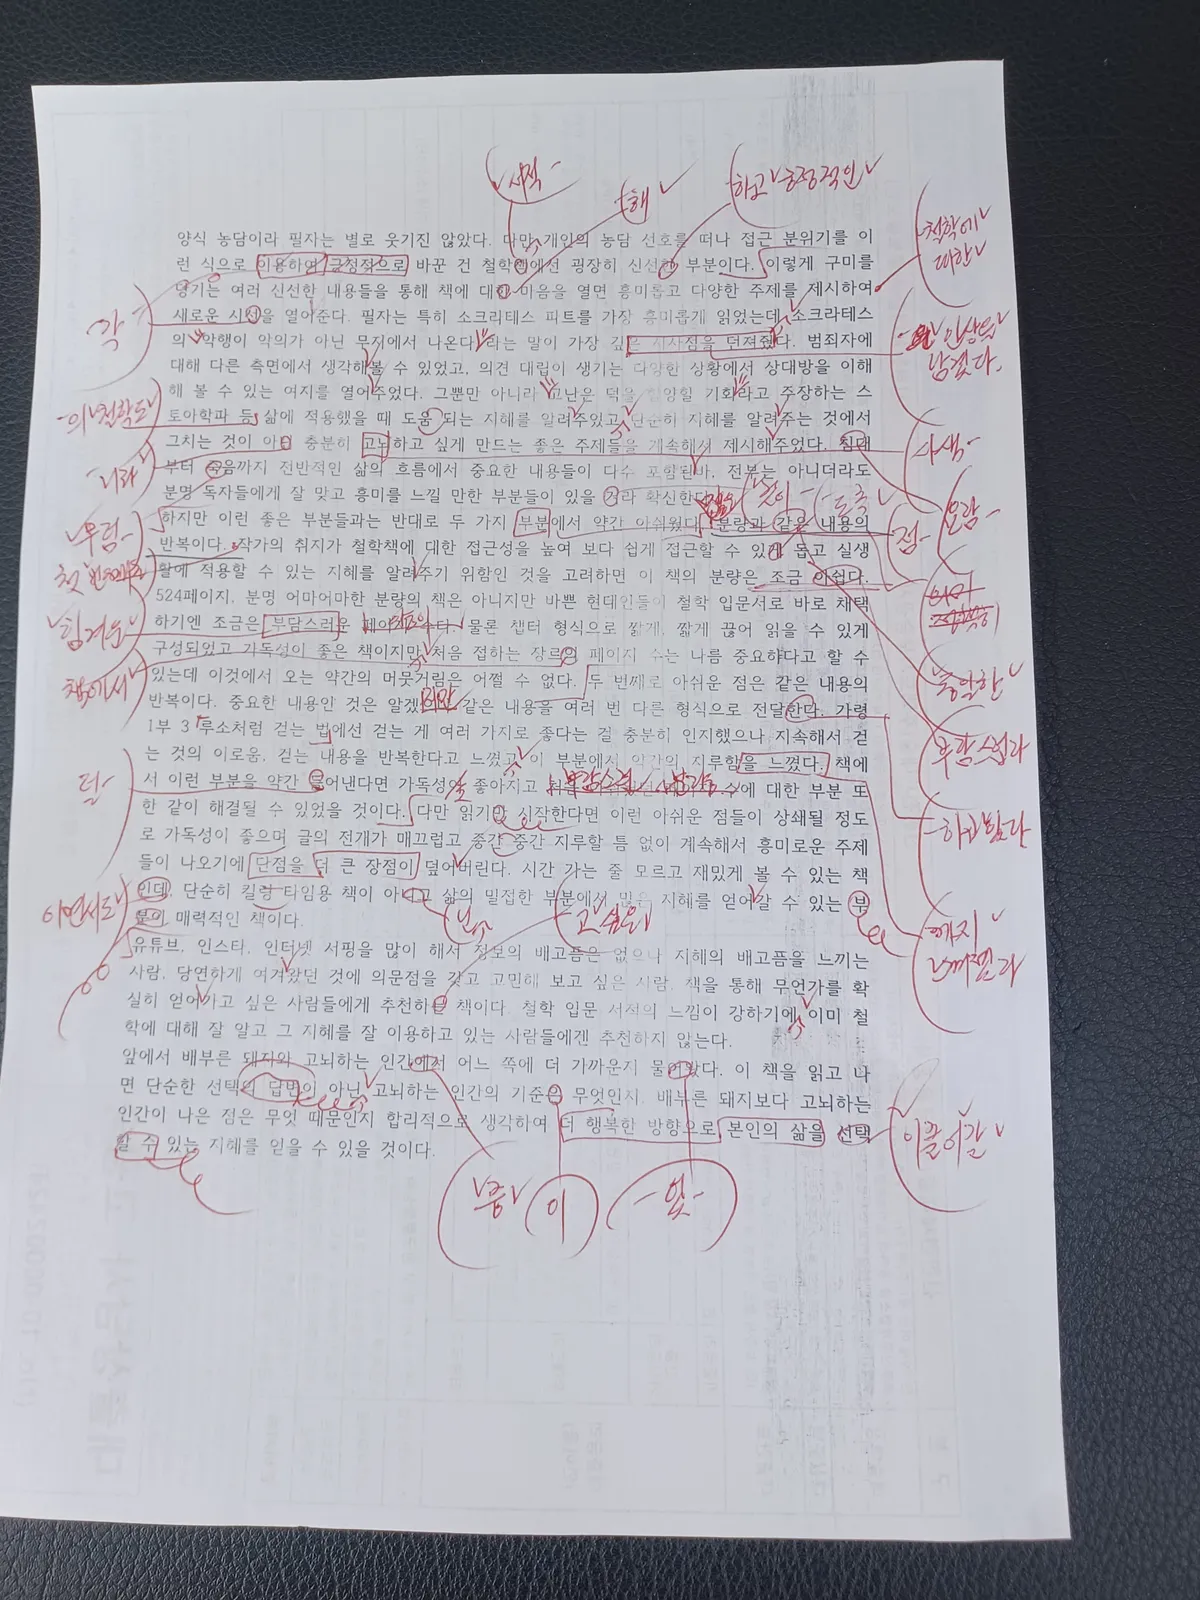 서적
해
하고 긍정적인
양식 농담이라 필자는 별로 웃기진 않았다. 다만 개인의 농담 선호를 떠나 접근 분위기를 이
런 식으로 이용하여 긍정적으로 바꾼 건 철학책에선 굉장히 신선한 부분이다. 이렇게 구미를
당기는 여러 신선한 내용들을 통해 책에 대한 마음을 열면 흥미롭고 다양한 주제를 제시하여
철학에
대한
새로운 시선을 열어준다. 필자는 특히 소크라테스 피트를 가장 흥미롭게 읽었는데 소크라테스
각
의 악행이 악의가 아닌 무지에서 나온다 라는 말이 가장 깊은 시사점을 던져줬다. 범죄자에
인상을
남겼다.
대해 다른 측면에서 생각해볼 수 있었고, 의견 대립이 생기는 다양한 상황에서 상대방을 이해
해 볼 수 있는 여지를 열어주었다. 그뿐만 아니라 고난은 덕을 함양할 기회라고 주장하는 스
의 철학도
토아학파 등 삶에 적용했을 때 도움 되는 지혜를 알려주었고 단순히 지혜를 알려주는 것에서
그치는 것이 아닌 충분히 고뇌하고 싶게 만드는 좋은 주제들을 계속해서 제시해주었다. 침대
니라
사색
부터 죽음까지 전반적인 삶의 흐름에서 중요한 내용들이 다수 포함된바, 전부는 아니더라도
분명 독자들에게 잘 맞고 흥미를 느낄 만한 부분들이 있을 거라 확신한다.
하지만 이런 좋은 부분들과는 반대로 두 가지 부분에서 약간 아쉬웠다. 분량과 같은 내용의
점
반복이다. 작가의 취지가 철학책에 대한 접근성을 높여 보다 쉽게 접근할 수 있게 돕고 실생
활에 적용할 수 있는 지혜를 알려주기 위함인 것을 고려하면 이 책의 분량은 조금 아쉽다.
524페이지, 분명 어마어마한 분량의 책은 아니지만 바쁜 현대인들이 철학 입문서로 바로 채택
하기엔 조금은 부담스러운 페이지 다. 물론 챕터 형식으로 짧게, 짧게 끊어 읽을 수 있게
힘겨운
구성되었고 가독성이 좋은 책이지만 처음 접하는 장르의 페이지 수는 나름 중요하다고 할 수
책에서
있는데 이것에서 오는 약간의 머뭇거림은 어쩔 수 없다. 두 번째로 아쉬운 점은 같은 내용의
반복이다. 중요한 내용인 것은 알겠 지만 같은 내용을 여러 번 다른 형식으로 전달한다. 가령
1부 3 루소처럼 걷는 법에선 걷는 게 여러 가지로 좋다는 걸 충분히 인지했으나 지속해서 걷
는 것의 이로움, 걷는 내용을 반복한다고 느꼈고 이 부분에서 약간의 지루함을 느꼈다. 책에
서 이런 부분을 약간 덜어낸다면 가독성이 좋아지고 수에 대한 부분 또
덜
한 같이 해결될 수 있었을 것이다. 다만 읽기만 시작한다면 이런 아쉬운 점들이 상쇄될 정도
로 가독성이 좋으며 글의 전개가 매끄럽고 중간 중간 지루할 틈 없이 계속해서 흥미로운 주제
하고 있다
들이 나오기에 단점을 더 큰 장점이 덮어버린다. 시간 가는 줄 모르고 재밌게 볼 수 있는 책
인데, 단순히 킬링 타임용 책이 아니고 삶의 밀접한 부분에서 많은 지혜를 얻어갈 수 있는 부
이면서도
분이 매력적인 책이다.
유튜브, 인스타, 인터넷 서핑을 많이 해서 정보의 배고픔은 없으나 지혜의 배고픔을 느끼는
까지
느껴졌다
사람, 당연하게 여겨왔던 것에 의문점을 갖고 고민해 보고 싶은 사람, 책을 통해 무언가를 확
실히 얻어가고 싶은 사람들에게 추천하는 책이다. 철학 입문 서적의 느낌이 강하기에 이미 철
학에 대해 잘 알고 그 지혜를 잘 이용하고 있는 사람들에겐 추천하지 않는다.
앞에서 배부른 돼지와 고뇌하는 인간에서 어느 쪽에 더 가까운지 물어봤다. 이 책을 읽고 나
면 단순한 선택의 답변이 아닌 고뇌하는 인간의 기준은 무엇인지, 배부른 돼지보다 고뇌하는
인간이 나은 점은 무엇 때문인지 합리적으로 생각하여 더 행복한 방향으로 본인의 삶을 선택
이끌어갈
할 수 있는 지혜를 얻을 수 있을 것이다.
중
이
았